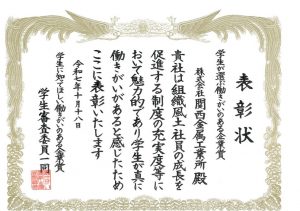 表彰状
学生が選ぶ働きがいのある企業賞
株式会社 関西金属工業所 殿
貴社は組織風土社員の成長を
促進する制度の充実度等に
おいて魅力的であり学生が真に
働きがいがあると感じたため
ここに表彰いたします
令和七年十月十八日
学生に知ってほしい働きがいのある企業賞
学生審査委員一同